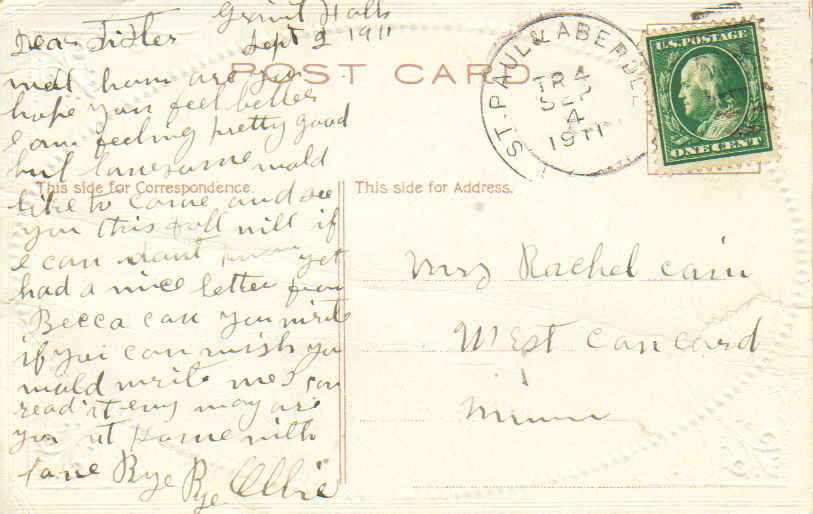 Granit Falls
Sept 2 1911
Dear Sister
POST CARD
well how are you
hope you feel better
I am feeling pretty good
but lonesome wold
This side for Correspondence.
like to come and see
you this fall will if
I can dont know yet
had a nice letter from
Becca can you write
if you can wish you
wold write me I can
read it eny way are
you at home with
love Bye
Bye Ollie
ST. PAUL & ABERDEE
TR 4
SEP
4
1911
U.S. POSTAGE
ONE CENT
This side for Address.
Mrs Rachel Cain
West Concord
Minn